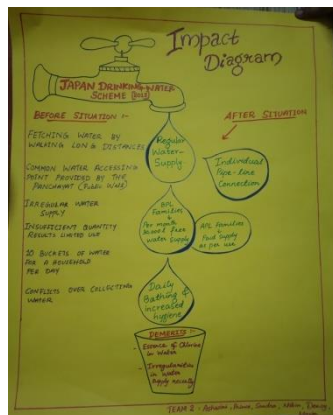 Impact
Diagram
JAPAN DRINKING WATER
SCHEME
BEFORE SITUATION :-
FETCHING WATER BY
WALKING LONG DISTANCES
COMMON WATER ACCESSING
POINT PROVIDED BY THE
PANCHAYAT
IRREGULAR WATER
SUPPLY
INSUFFICIENT QUANTITY
RESULTS LIMITED USE
10 BUCKETS OF WATER
FOR A HOUSEHOLD
PER DAY
CONFLICTS OVER COLLECTING
WATER
AFTER SITUATION
Regular
Water-
Supply
Individual
Pipe-Line
Connection
BPL
Families
Per month
water supply
APL Families
Paid Supply
as per use
Daily
Bathing &
increased
hygiene
DEMERITS:
- Essence of Chlorine
in Water
- Irregularities
in water
supply recently
TEAM 2 -